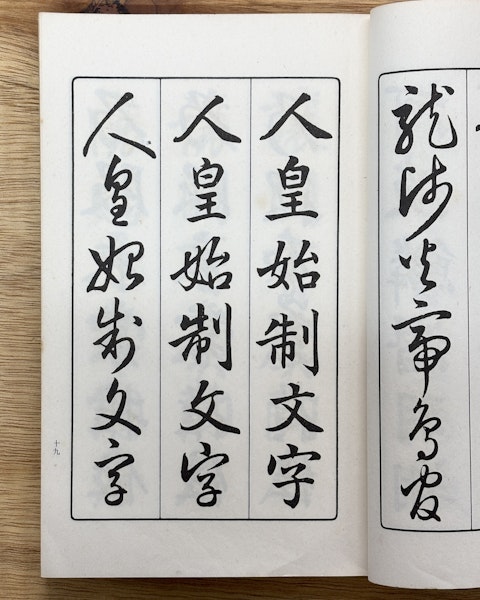 龍師火帝鳥官
人皇始制文字
人皇始制文字
人皇始制文字
十九